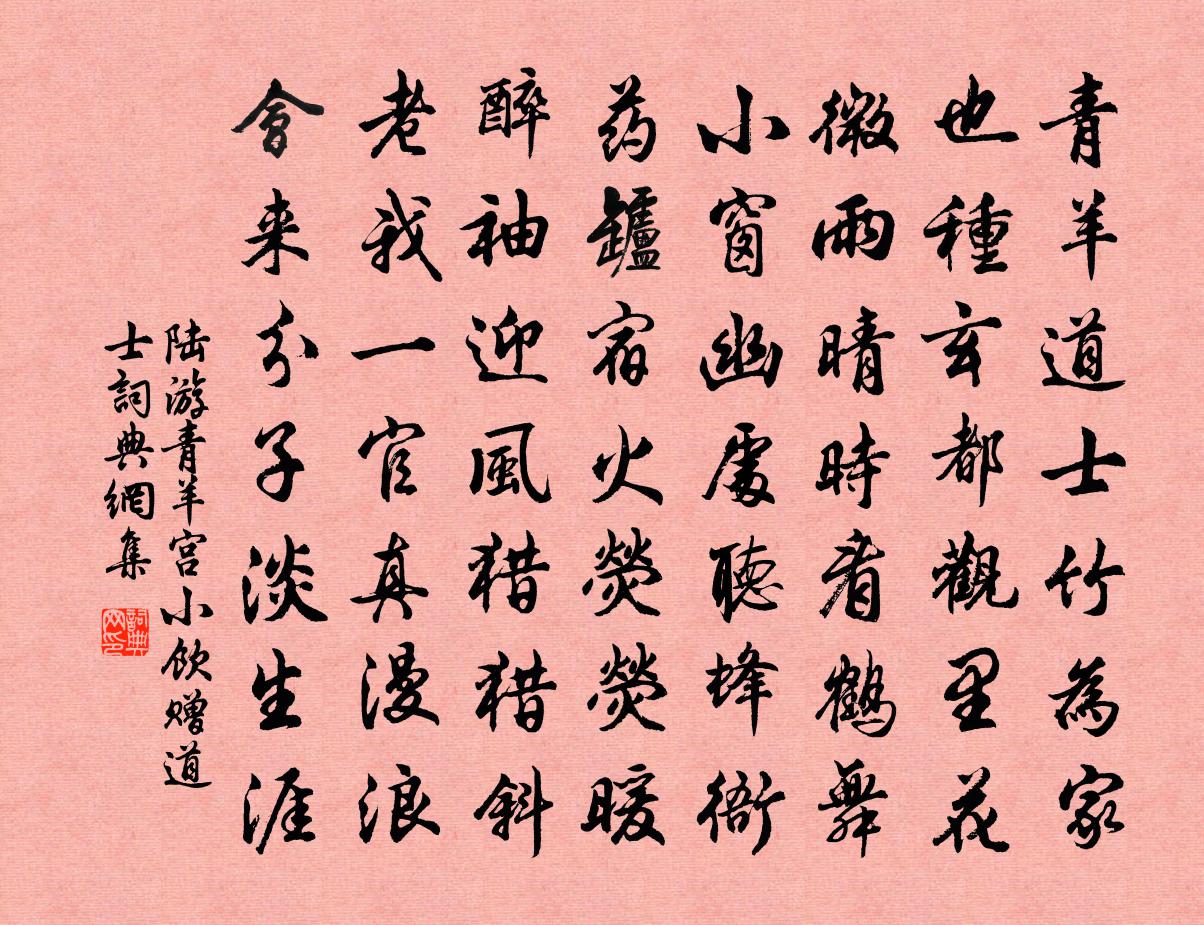 青羊道士竹為家
也種玄都觀里花
微雨晴時看鶴舞
小窗幽處聽蜂衙
药鑪宿火熒熒暖
醉袖迎風猎猎斜
老我一官真漫浪
會来分子淡生涯
陆游青羊宫小飲赠道
士詞典網集
詞典
网印